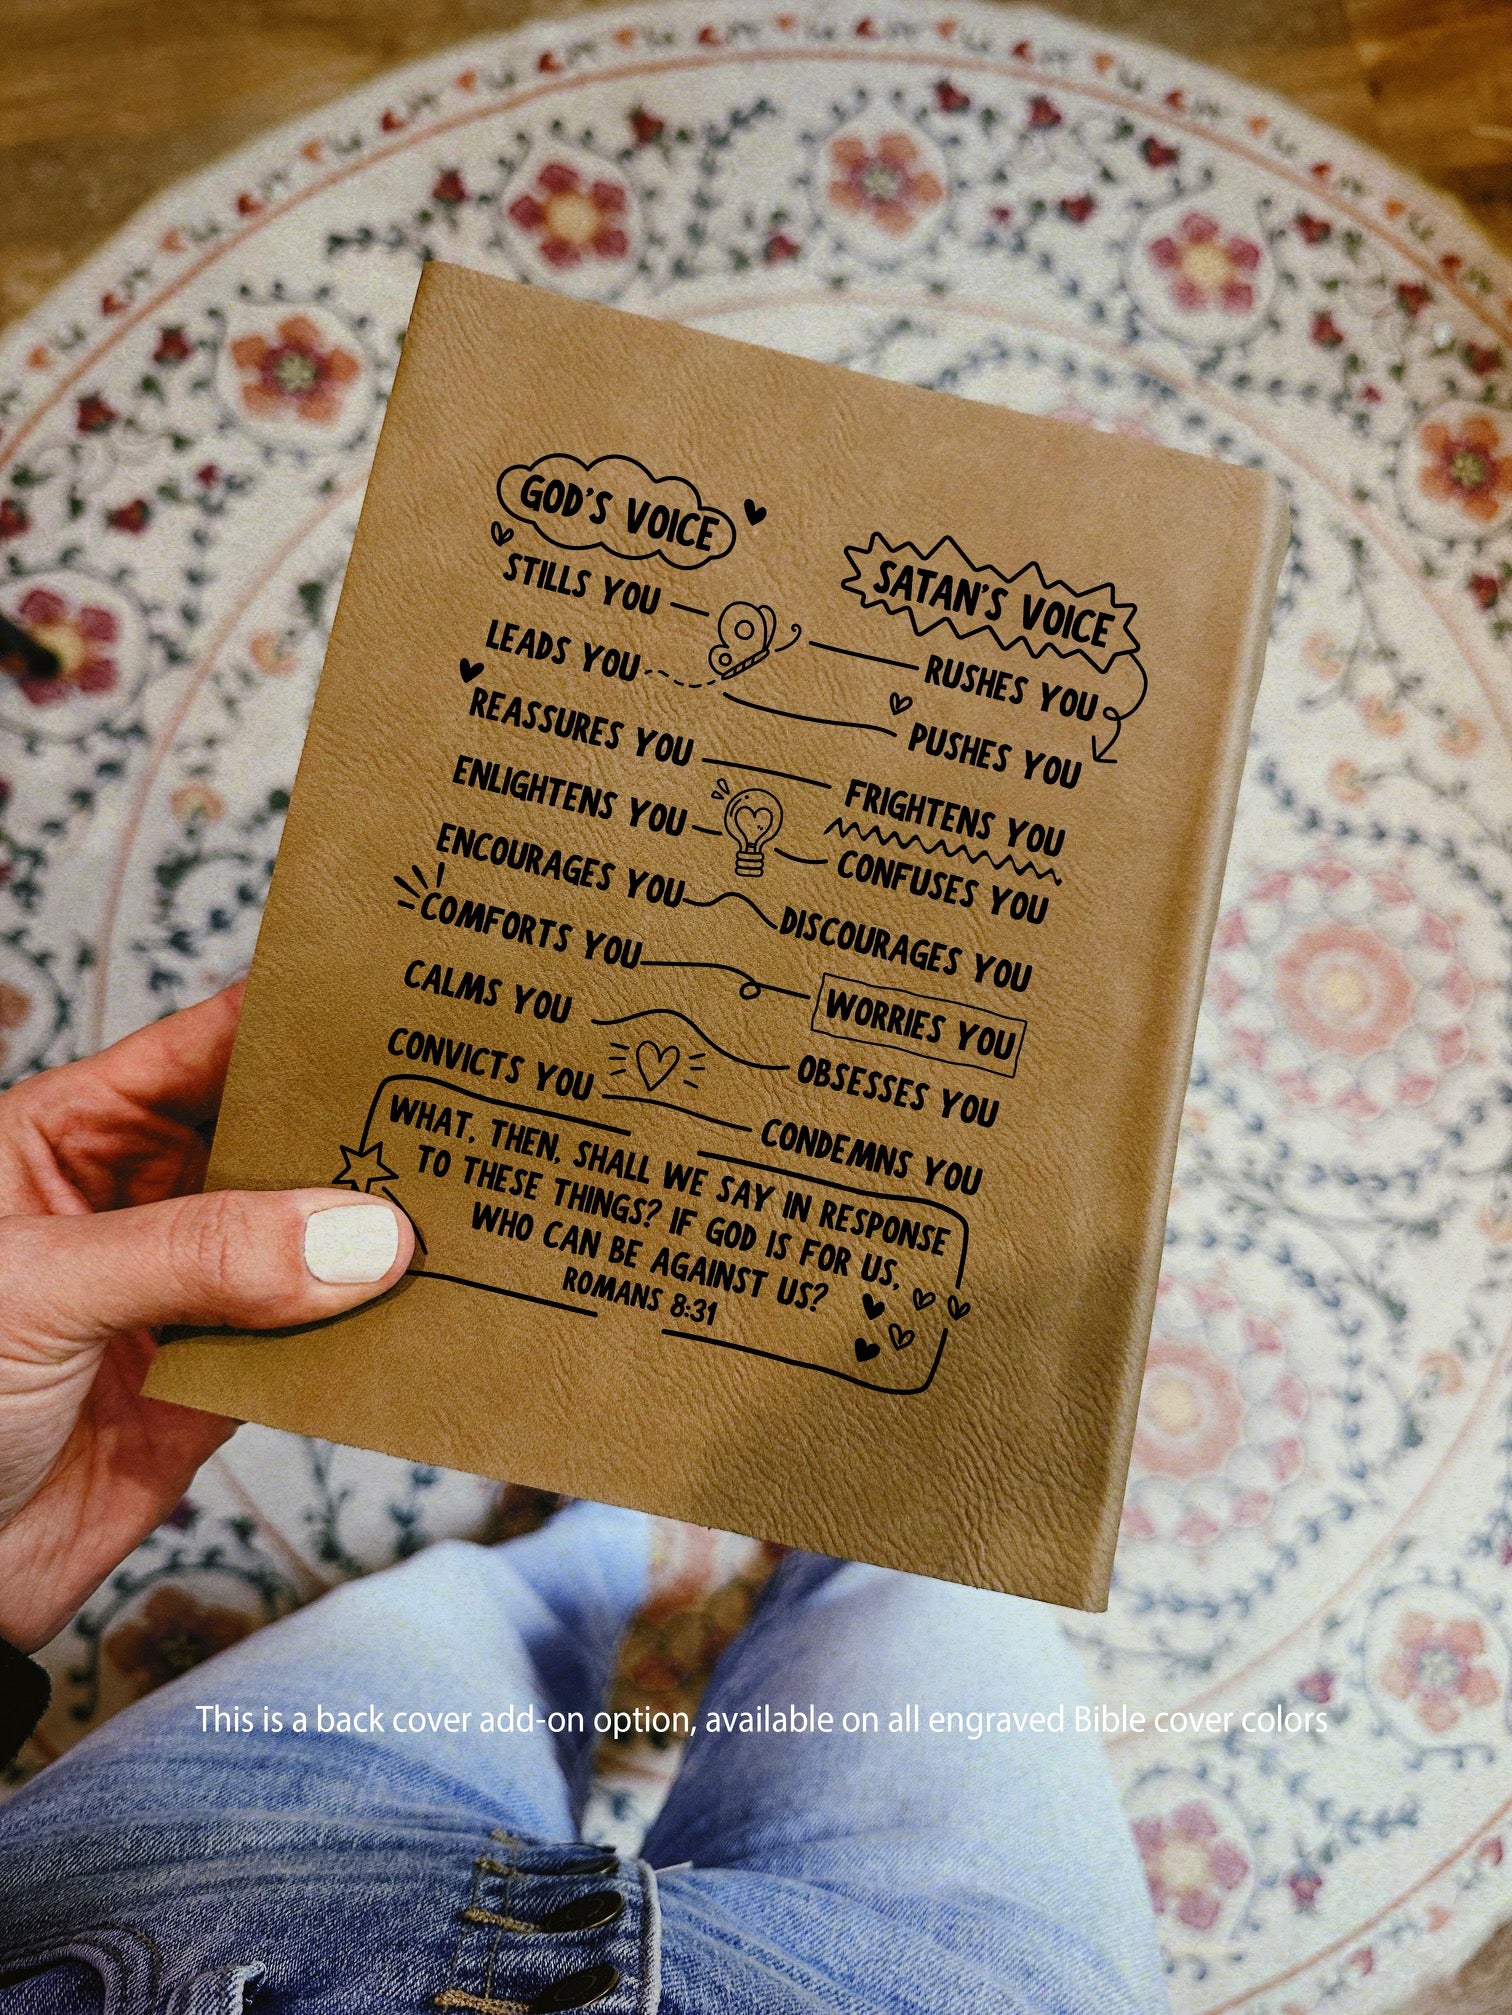 GOD'S VOICE
SATAN'S VOICE
STILLS YOU
RUSHES YOU
LEADS YOU
PUSHES YOU
REASSURES YOU
FRIGHTENS YOU
ENLIGHTENS YOU
CONFUSES YOU
ENCOURAGES YOU
DISCOURAGES YOU
COMFORTS YOU
WORRIES YOU
CALMS YOU
OBSESSES YOU
CONVICTS YOU
CONDEMNS YOU
WHAT, THEN, SHALL WE SAY IN RESPONSE
TO THESE THINGS? IF GOD IS FOR US,
WHO CAN BE AGAINST US?
ROMANS 8:31
This is a back cover add-on option, available on all engraved Bible cover colors